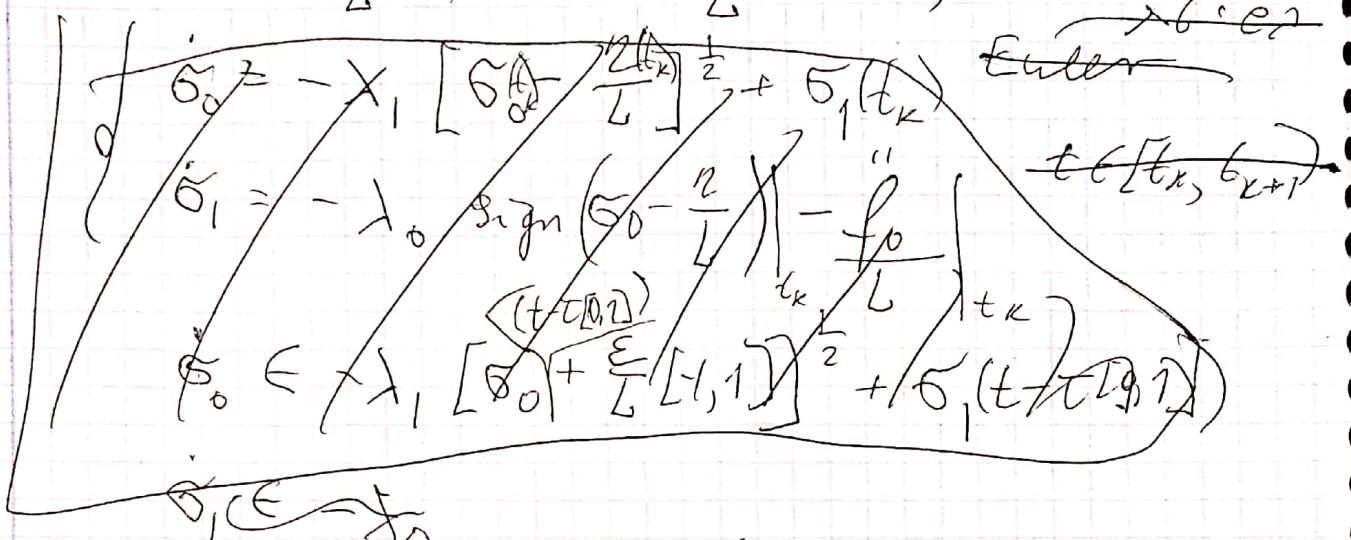 σ̇₀ = - λ₁ [σ₀(tₖ) - η(tₖ)/L]^{1/2} + σ₁(tₖ)
Euler
t ∈ [tₖ, tₖ₊₁)
σ̇₁ = - λ₀ sign(σ₀ - η/L)|_{tₖ} - f̈₀/L|_{tₖ}
(t-τ[0,1])
σ̇₀ ∈ -λ₁ [σ₀ + ε/L [-1,1]]^{1/2} + σ₁(t-τ[0,1])
σ̇₁ ∈ - λ₀